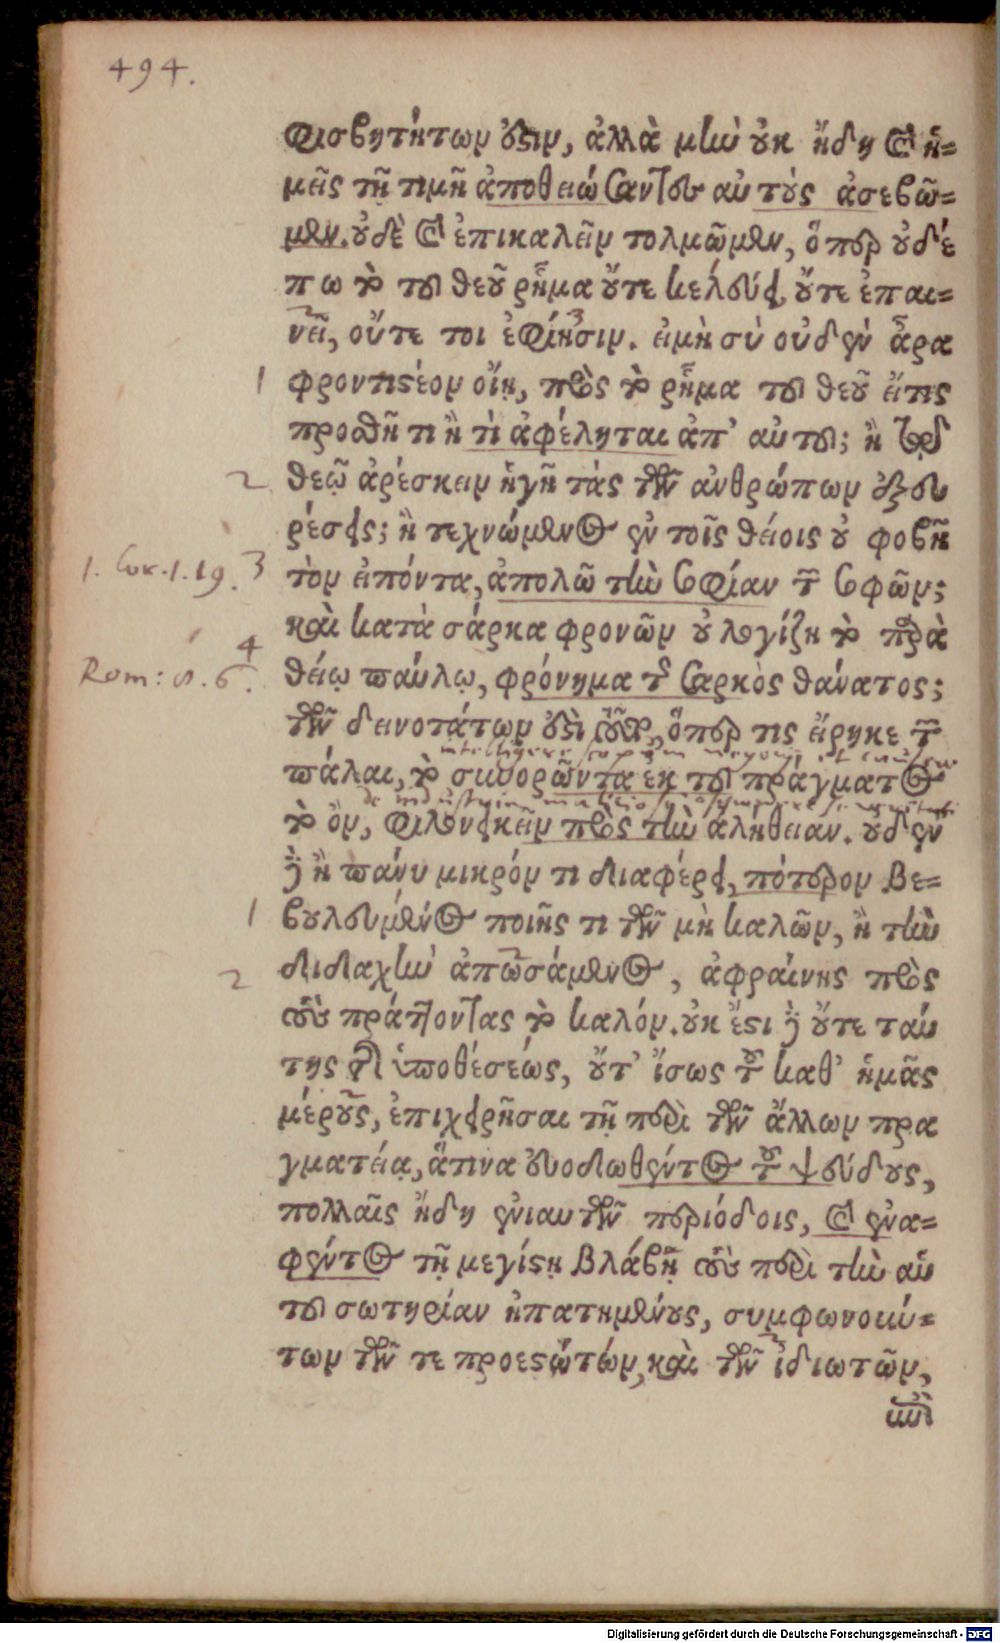 494.
φισβητήτων ὅστιν, ἀλλὰ μὴν οὐκ ἤδη καὶ ἡ-
μεῖς τῇ τιμῇ ἀποθειώσαντες αὐτοὺς ἀσεβῶ-
μεν. οὐδὲ καὶ ἐπικαλεῖν τολμῶμεν, ὅπερ οὐδέ
πω τὸ τοῦ θεοῦ ῥῆμα οὔτε κελεύει, οὔτε ἐπαι-
νεῖ, οὔτε τοι ἐφίησιν. εἰ μὴ σὺ οὐδὲν ἆρα
1 φροντιστέον οἴει, πρὸς τὸ ῥῆμα τοῦ θεοῦ εἴτις
προσθῇ τι ἢ τὶ ἀφέληται ἀπ' αὐτοῦ; ἢ τῷ
2 θεῷ ἀρέσκειν ἡγῇ τὰς τῶν ἀνθρώπων ἐξευ
ρέσεις; ἢ τεχνώμενος ἐν τοῖς θείοις οὐ φοβῇ
1. Cor. 1. 19. 3 τὸν εἰπόντα, ἀπολῶ τὴν σοφίαν τῶν σοφῶν;
καὶ κατὰ σάρκα φρονῶν οὐ λογίζῃ τὸ παρὰ
Rom: 8. 6. 4 θείῳ παύλῳ, φρόνημα τῆς σαρκὸς θάνατος;
τῶν δεινοτάτων ἐστὶ οὖν, ὅπερ τις εἴρηκε τῶν
πάλαι, τὸ σκυθορῶντα ἐκ τοῦ πράγματος
τὸ ὂν, φιλονεικεῖν πρὸς τὴν ἀλήθειαν. οὐδὲν
γὰρ ἢ πάνυ μικρόν τι διαφέρει, πότερον βε-
1 βουλευμένος ποιῇς τι τῶν μὴ καλῶν, ἢ τὴν
2 διδαχὴν ἀπωσάμενος, ἀφραίνῃς πρὸς
τοὺς πράττοντας τὸ καλόν. οὐκ ἔστι γὰρ οὔτε ταύ
της τῆς ὑποθέσεως, οὔτ' ἴσως τοῦ καθ' ἡμᾶς
μέρους, ἐπιχειρῆσαι τῇ περὶ τῶν ἄλλων πρα
γματείᾳ, ἅτινα εὐοδιωθέντος τοῦ ψεύδους,
πολλαῖς ἤδη ἐνιαυτῶν περιόδοις, καὶ ἐνα-
φέντος τῇ μεγίστῃ βλάβῃ τοὺς περὶ τὴν αὑ
τοῦ σωτηρίαν ἠπατημένους, συμφωνούν-
των τῶν τε προεστώτων, καὶ τῶν ἰδιωτῶν,
Digitalisierung gefördert durch die Deutsche Forschungsgemeinschaft - DFG